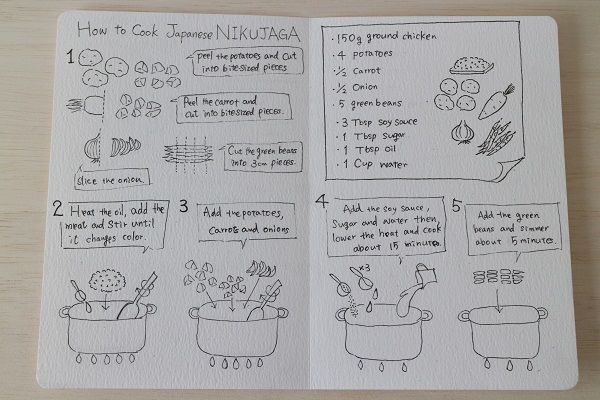 How to Cook Japanese NIKUJAGA
1
peel the potatoes and cut
into bite sized pieces.
Peel the carrot and
cut into bitesized pieces.
Cut the green beans
into 3cm pieces.
Slice the onion.
2
Heat the oil, add the
meat and stir until
it changes color.
3
Add the potatoes,
carrots and onions
・150g ground chicken
・4 potatoes
・1/2 Carrot
・1/2 Onion
・5 green beans
・3 Tbsp soy sauce
・1 Tbsp Sugar
・1 Tbsp Oil
・1 Cup water
4
Add the soy sauce,
Sugar and water then,
lower the heat and cook
about 15 minutes.
×3
5
Add the green
beans and simmer
about 5 minutes.